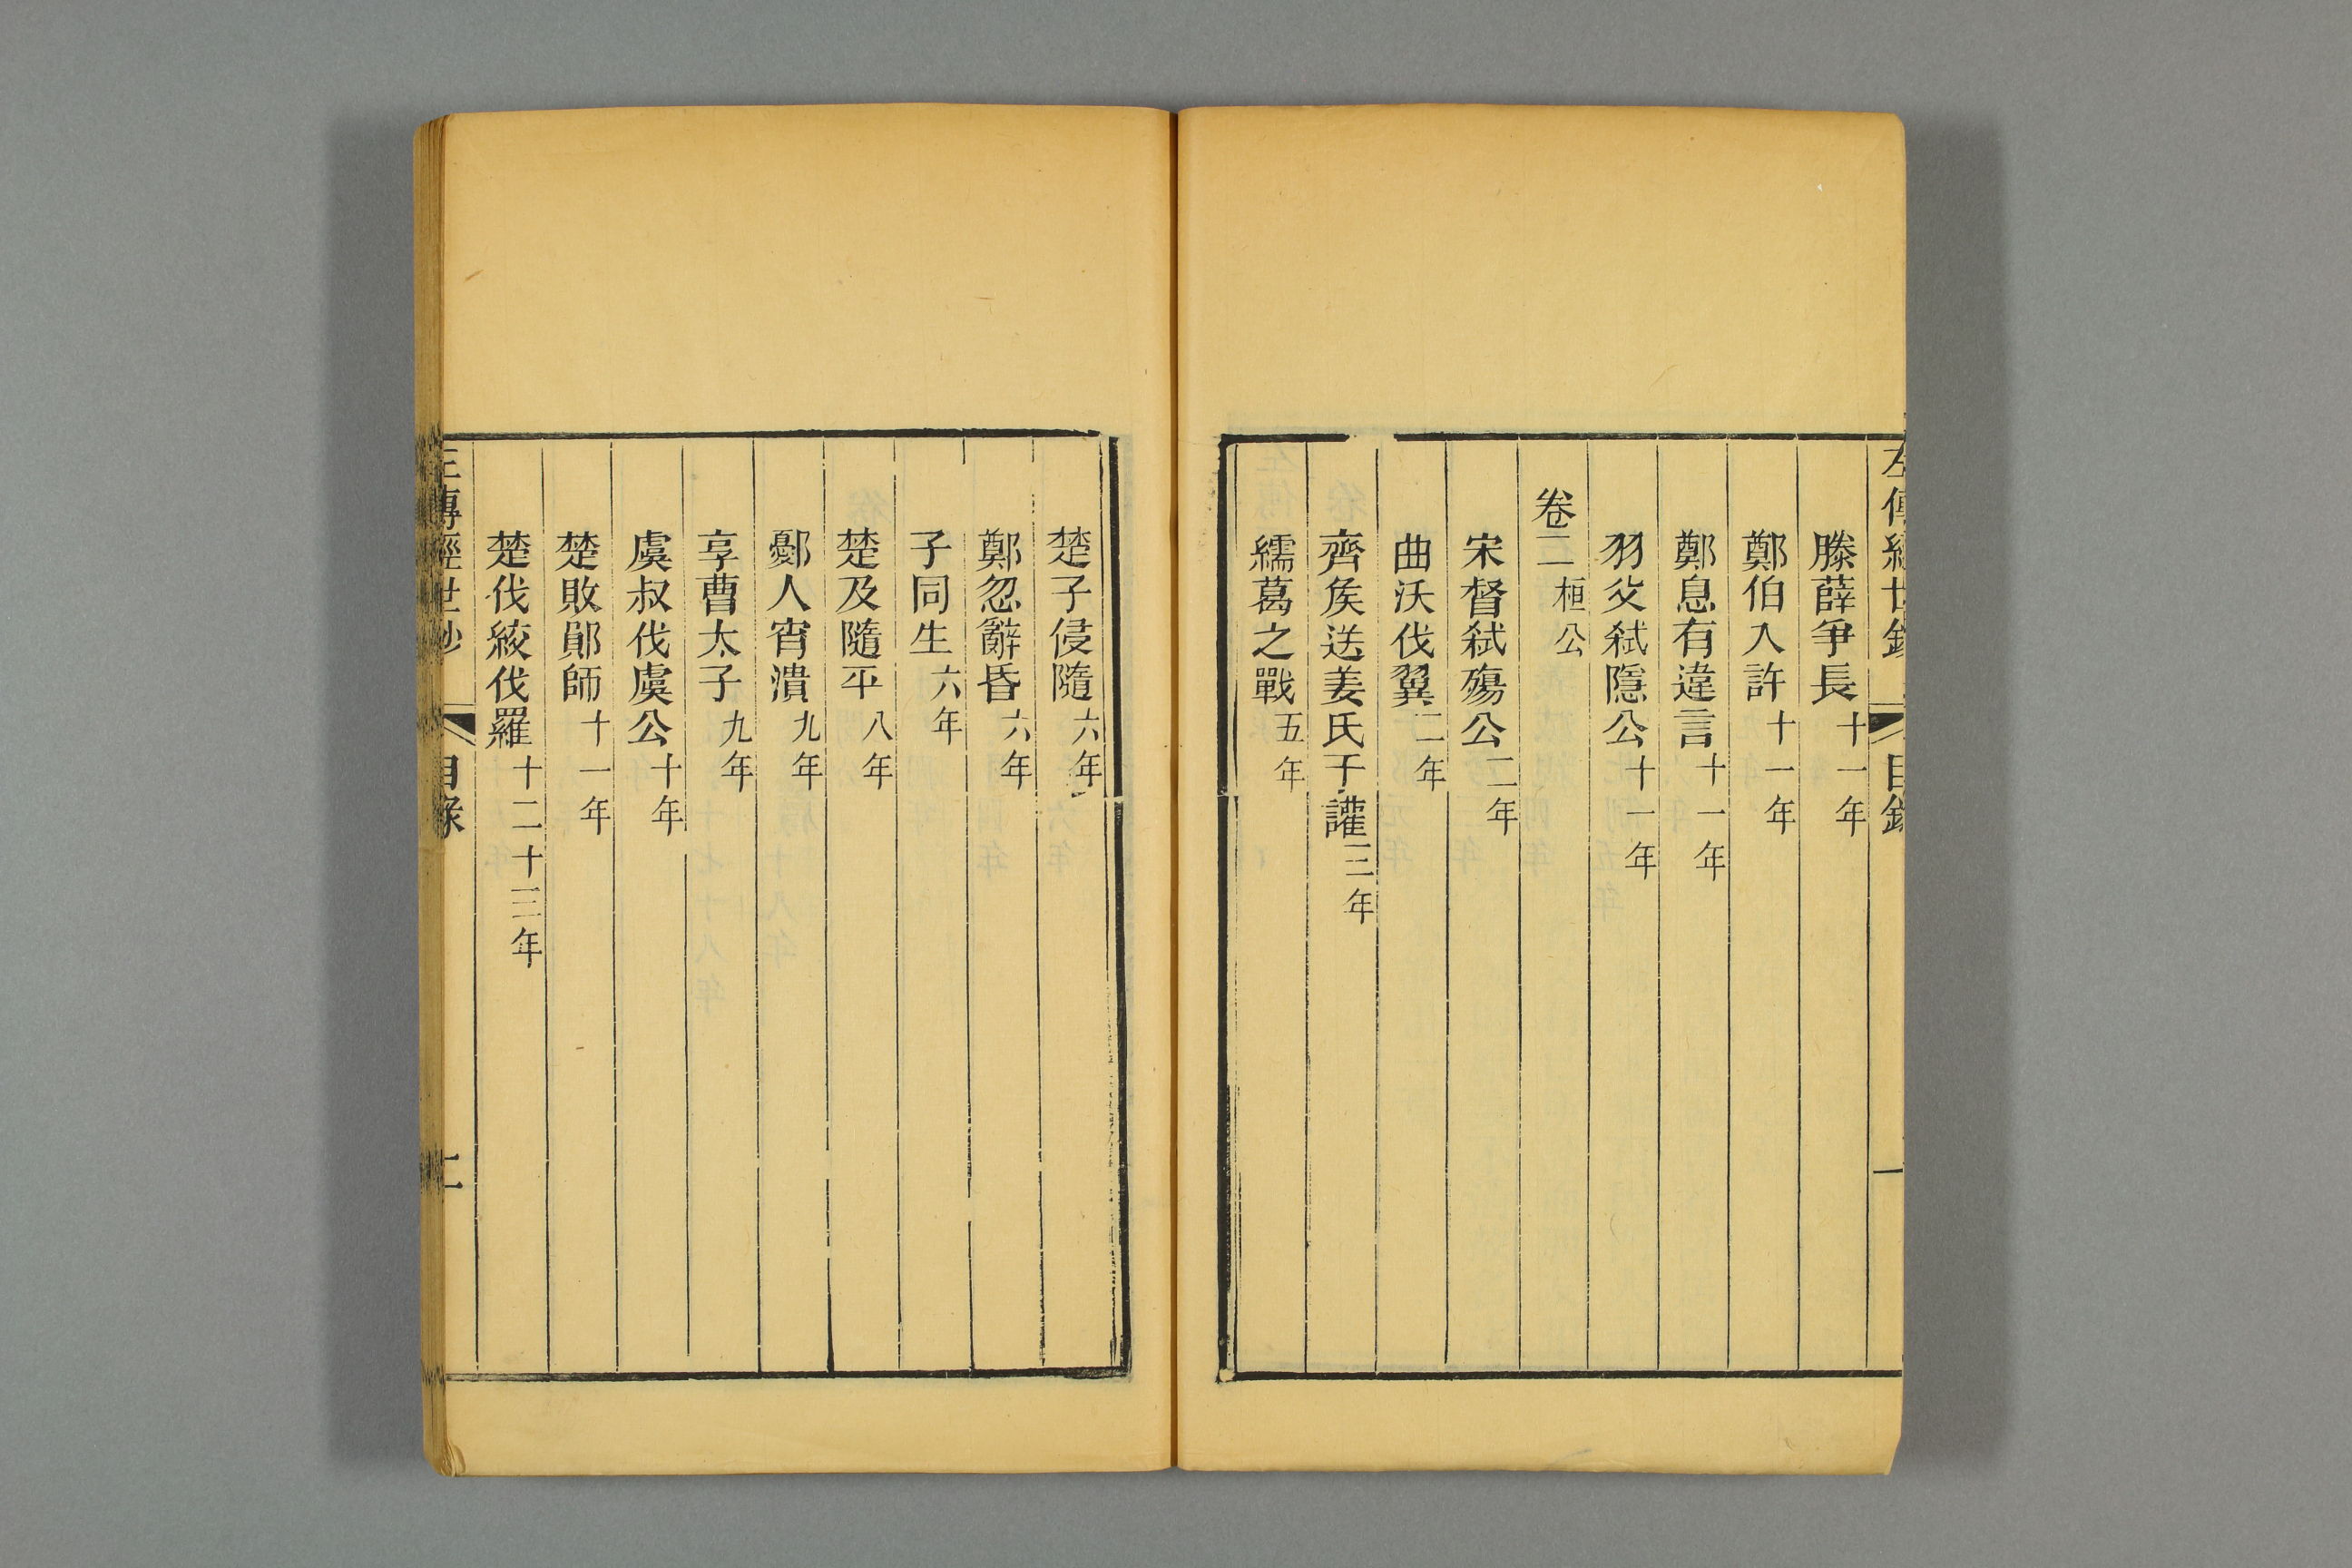 左傳經世鈔 目錄 一
滕薛爭長十一年
鄭伯入許十一年
鄭息有違言十一年
羽父弑隱公十一年
卷二桓公
宋督弑殤公二年
曲沃伐翼二年
齊矦送姜氏于讙三年
繻葛之戰五年
楚子侵隨六年
鄭忽辭昏六年
子同生六年
楚及隨平八年
鄾人宵潰九年
享曹太子九年
虞叔伐虞公十年
楚敗鄖師十一年
楚伐絞伐羅十二十三年
左傳經世鈔 目錄 二